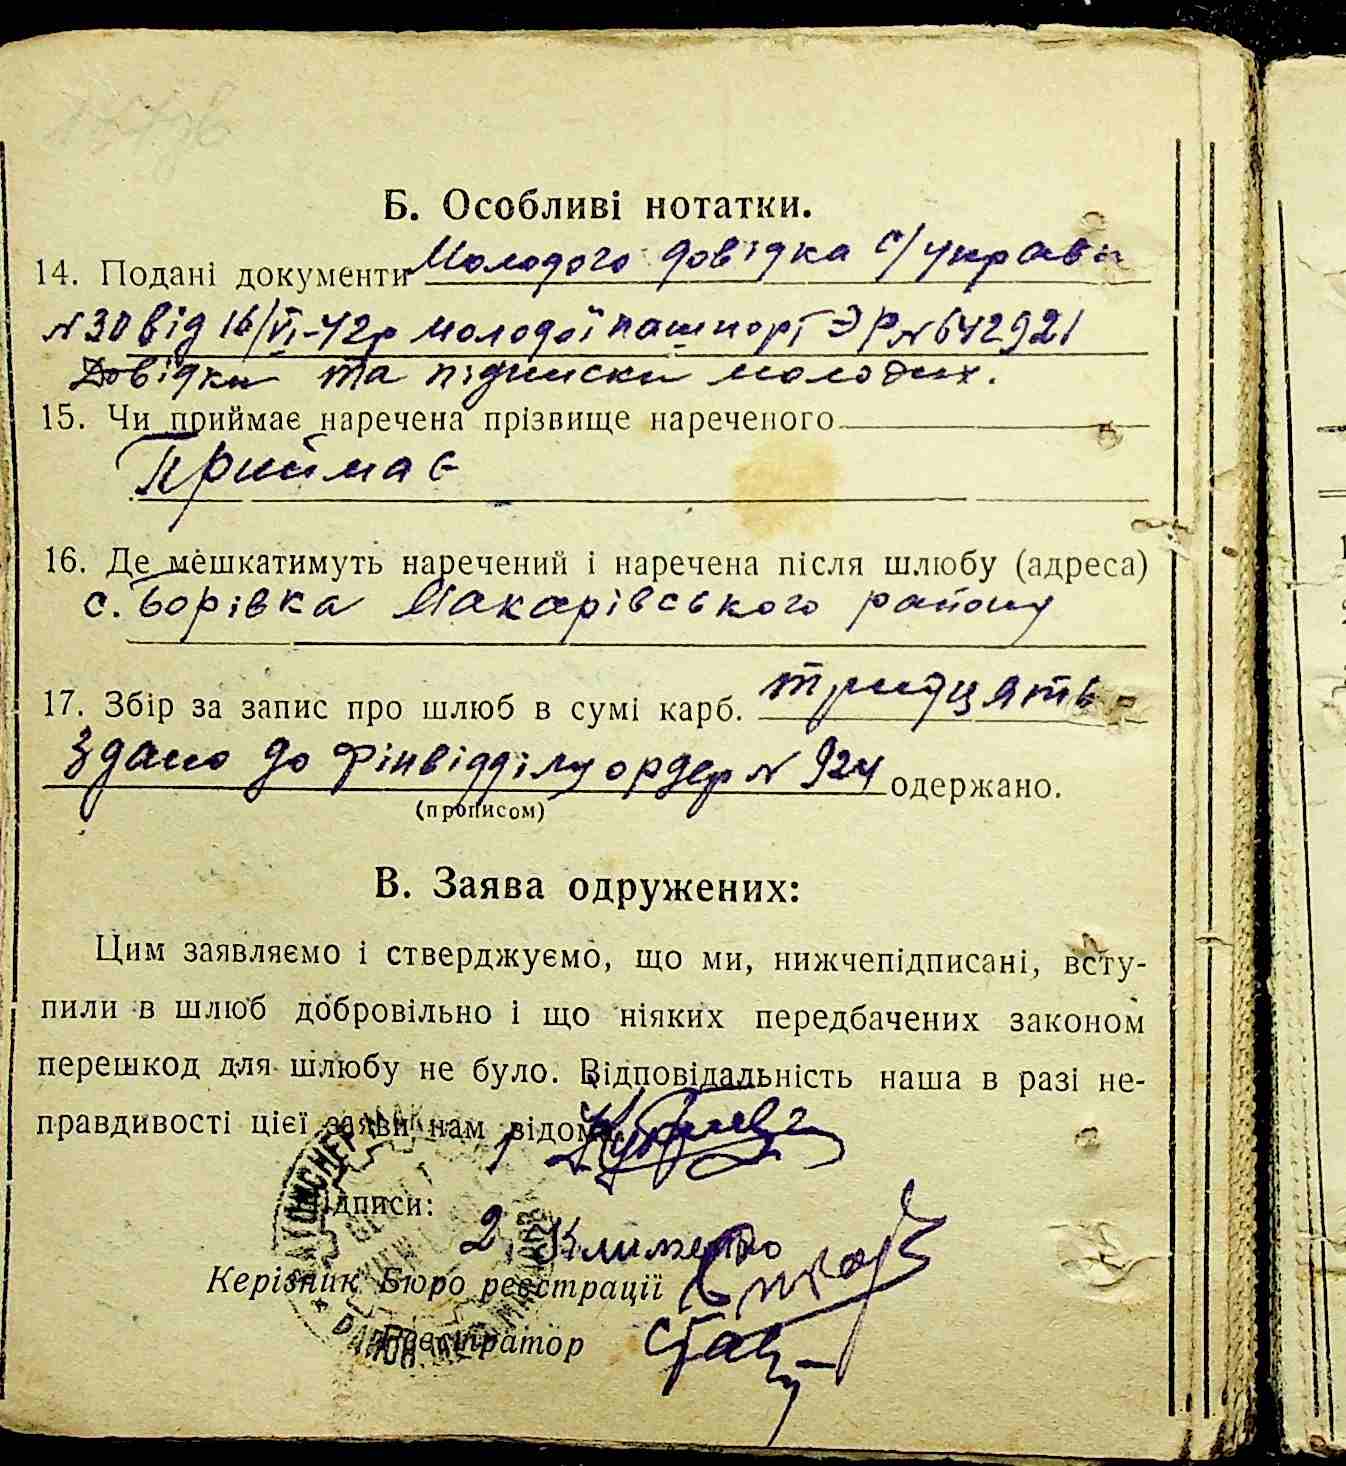 Б. Особливі нотатки.
14. Подані документи Молодого довідка с/управи
№30 від 16/VI-42р молодої пашпорт ЭР №642921
Довідки та підписки молодих.
15. Чи приймає наречена прізвище нареченого
Приймає
16. Де мешкатимуть наречений і наречена після шлюбу (адреса)
с. Борівка Макарівського району
17. Збір за запис про шлюб в сумі карб. тридцять
Здано до фінвідділу ордер № 924 одержано.
(прописом)
В. Заява одружених:
Цим заявляємо і стверджуємо, що ми, нижчепідписані, всту-
пили в шлюб добровільно і що ніяких передбачених законом
перешкод для шлюбу не було. Відповідальність наша в разі не-
правдивості цієї заяви нам відома.
1
Підписи:
2. Клименко
Керівник Бюро реєстрації
Реєстратор